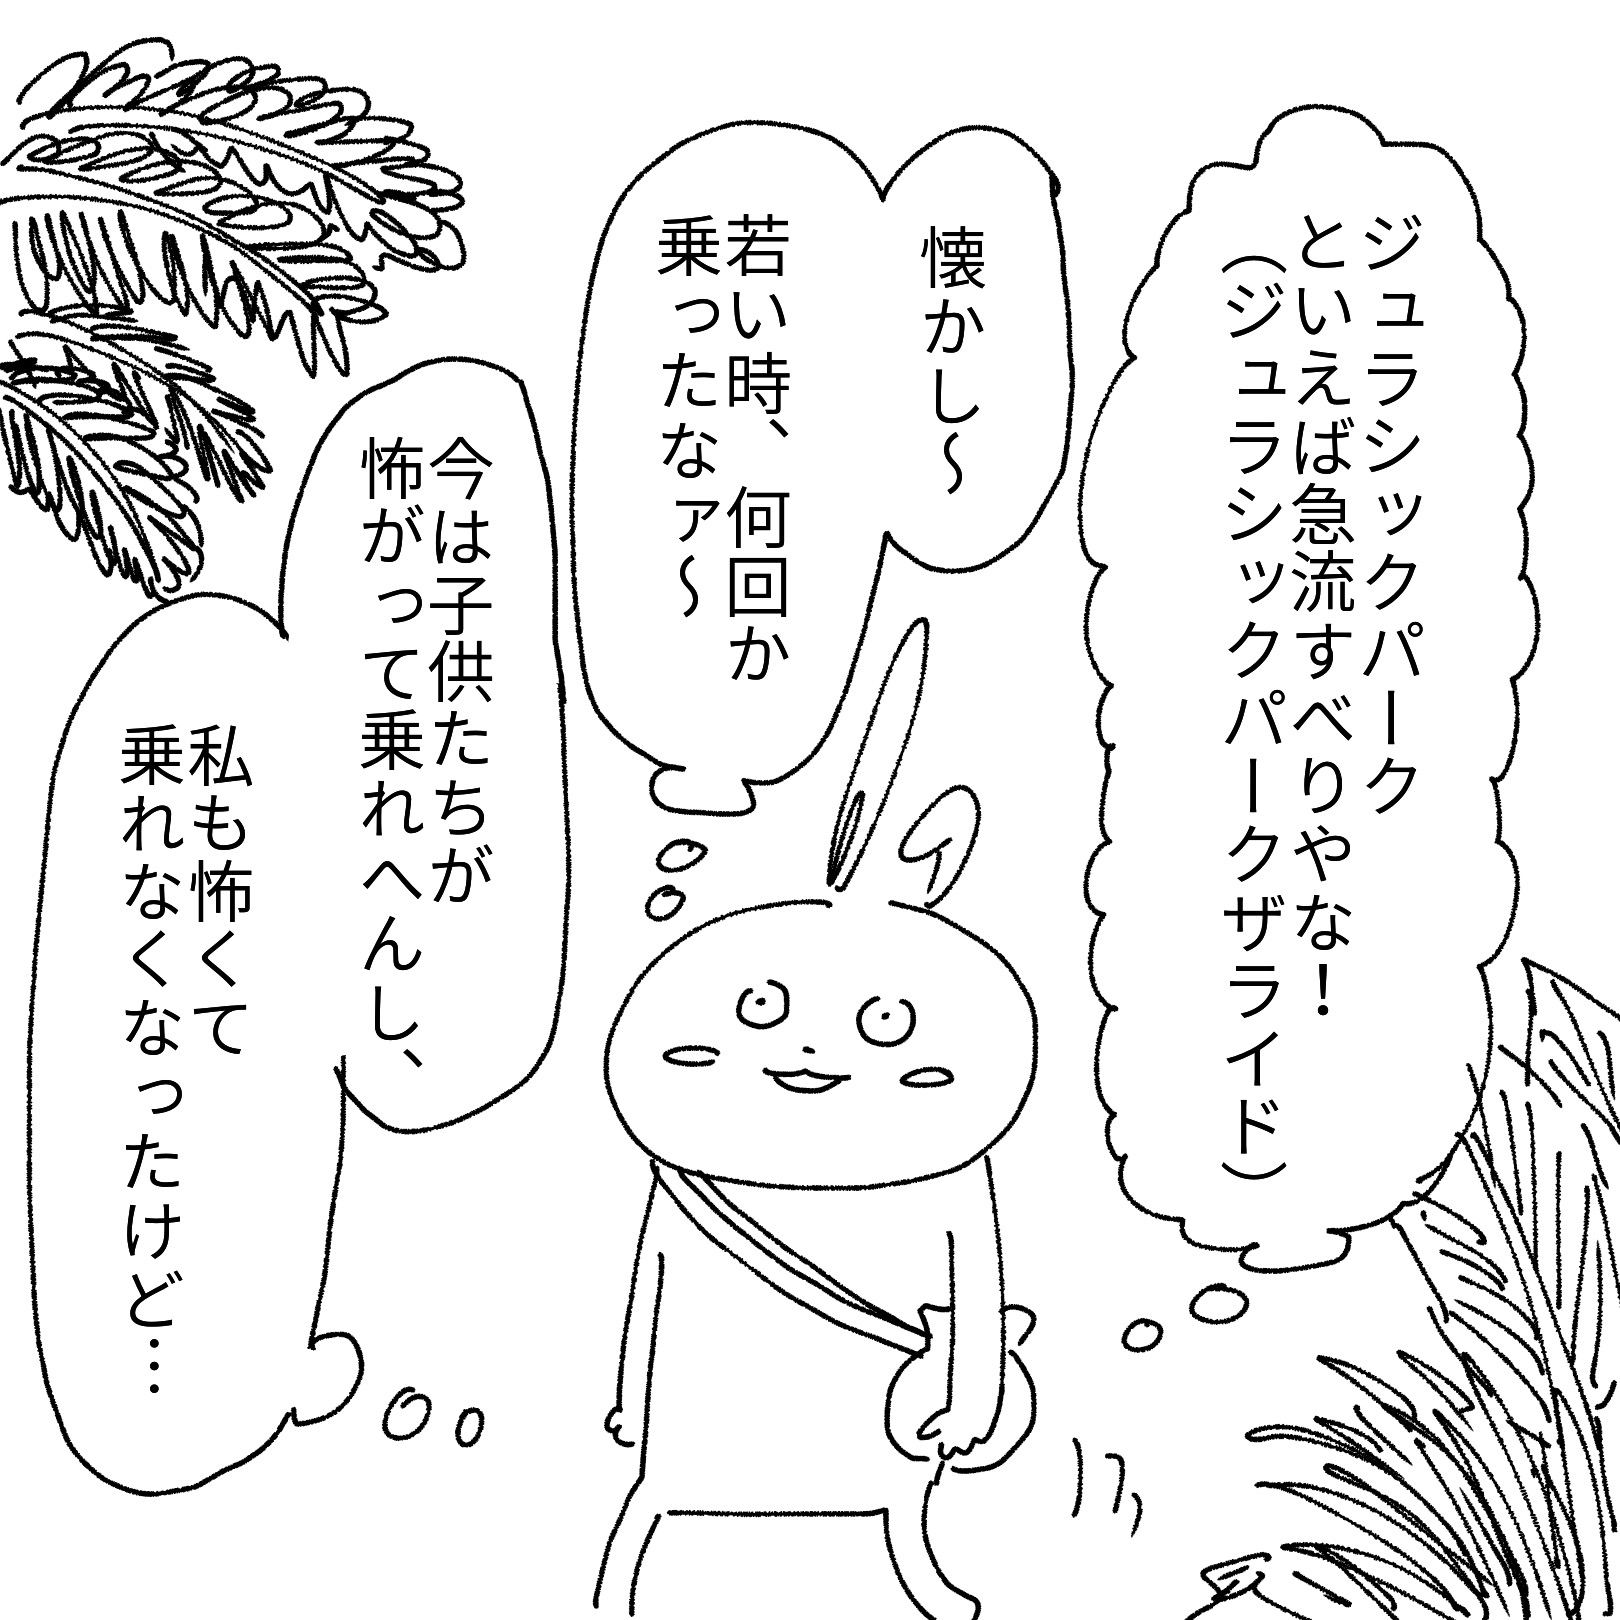 ジュラシックパーク
といえば急流すべりやな！
（ジュラシックパークザライド）
懐かし〜
若い時、何回か
乗ったなァ〜
今は子供たちが
怖がって乗れへんし、
私も怖くて
乗れなくなったけど…